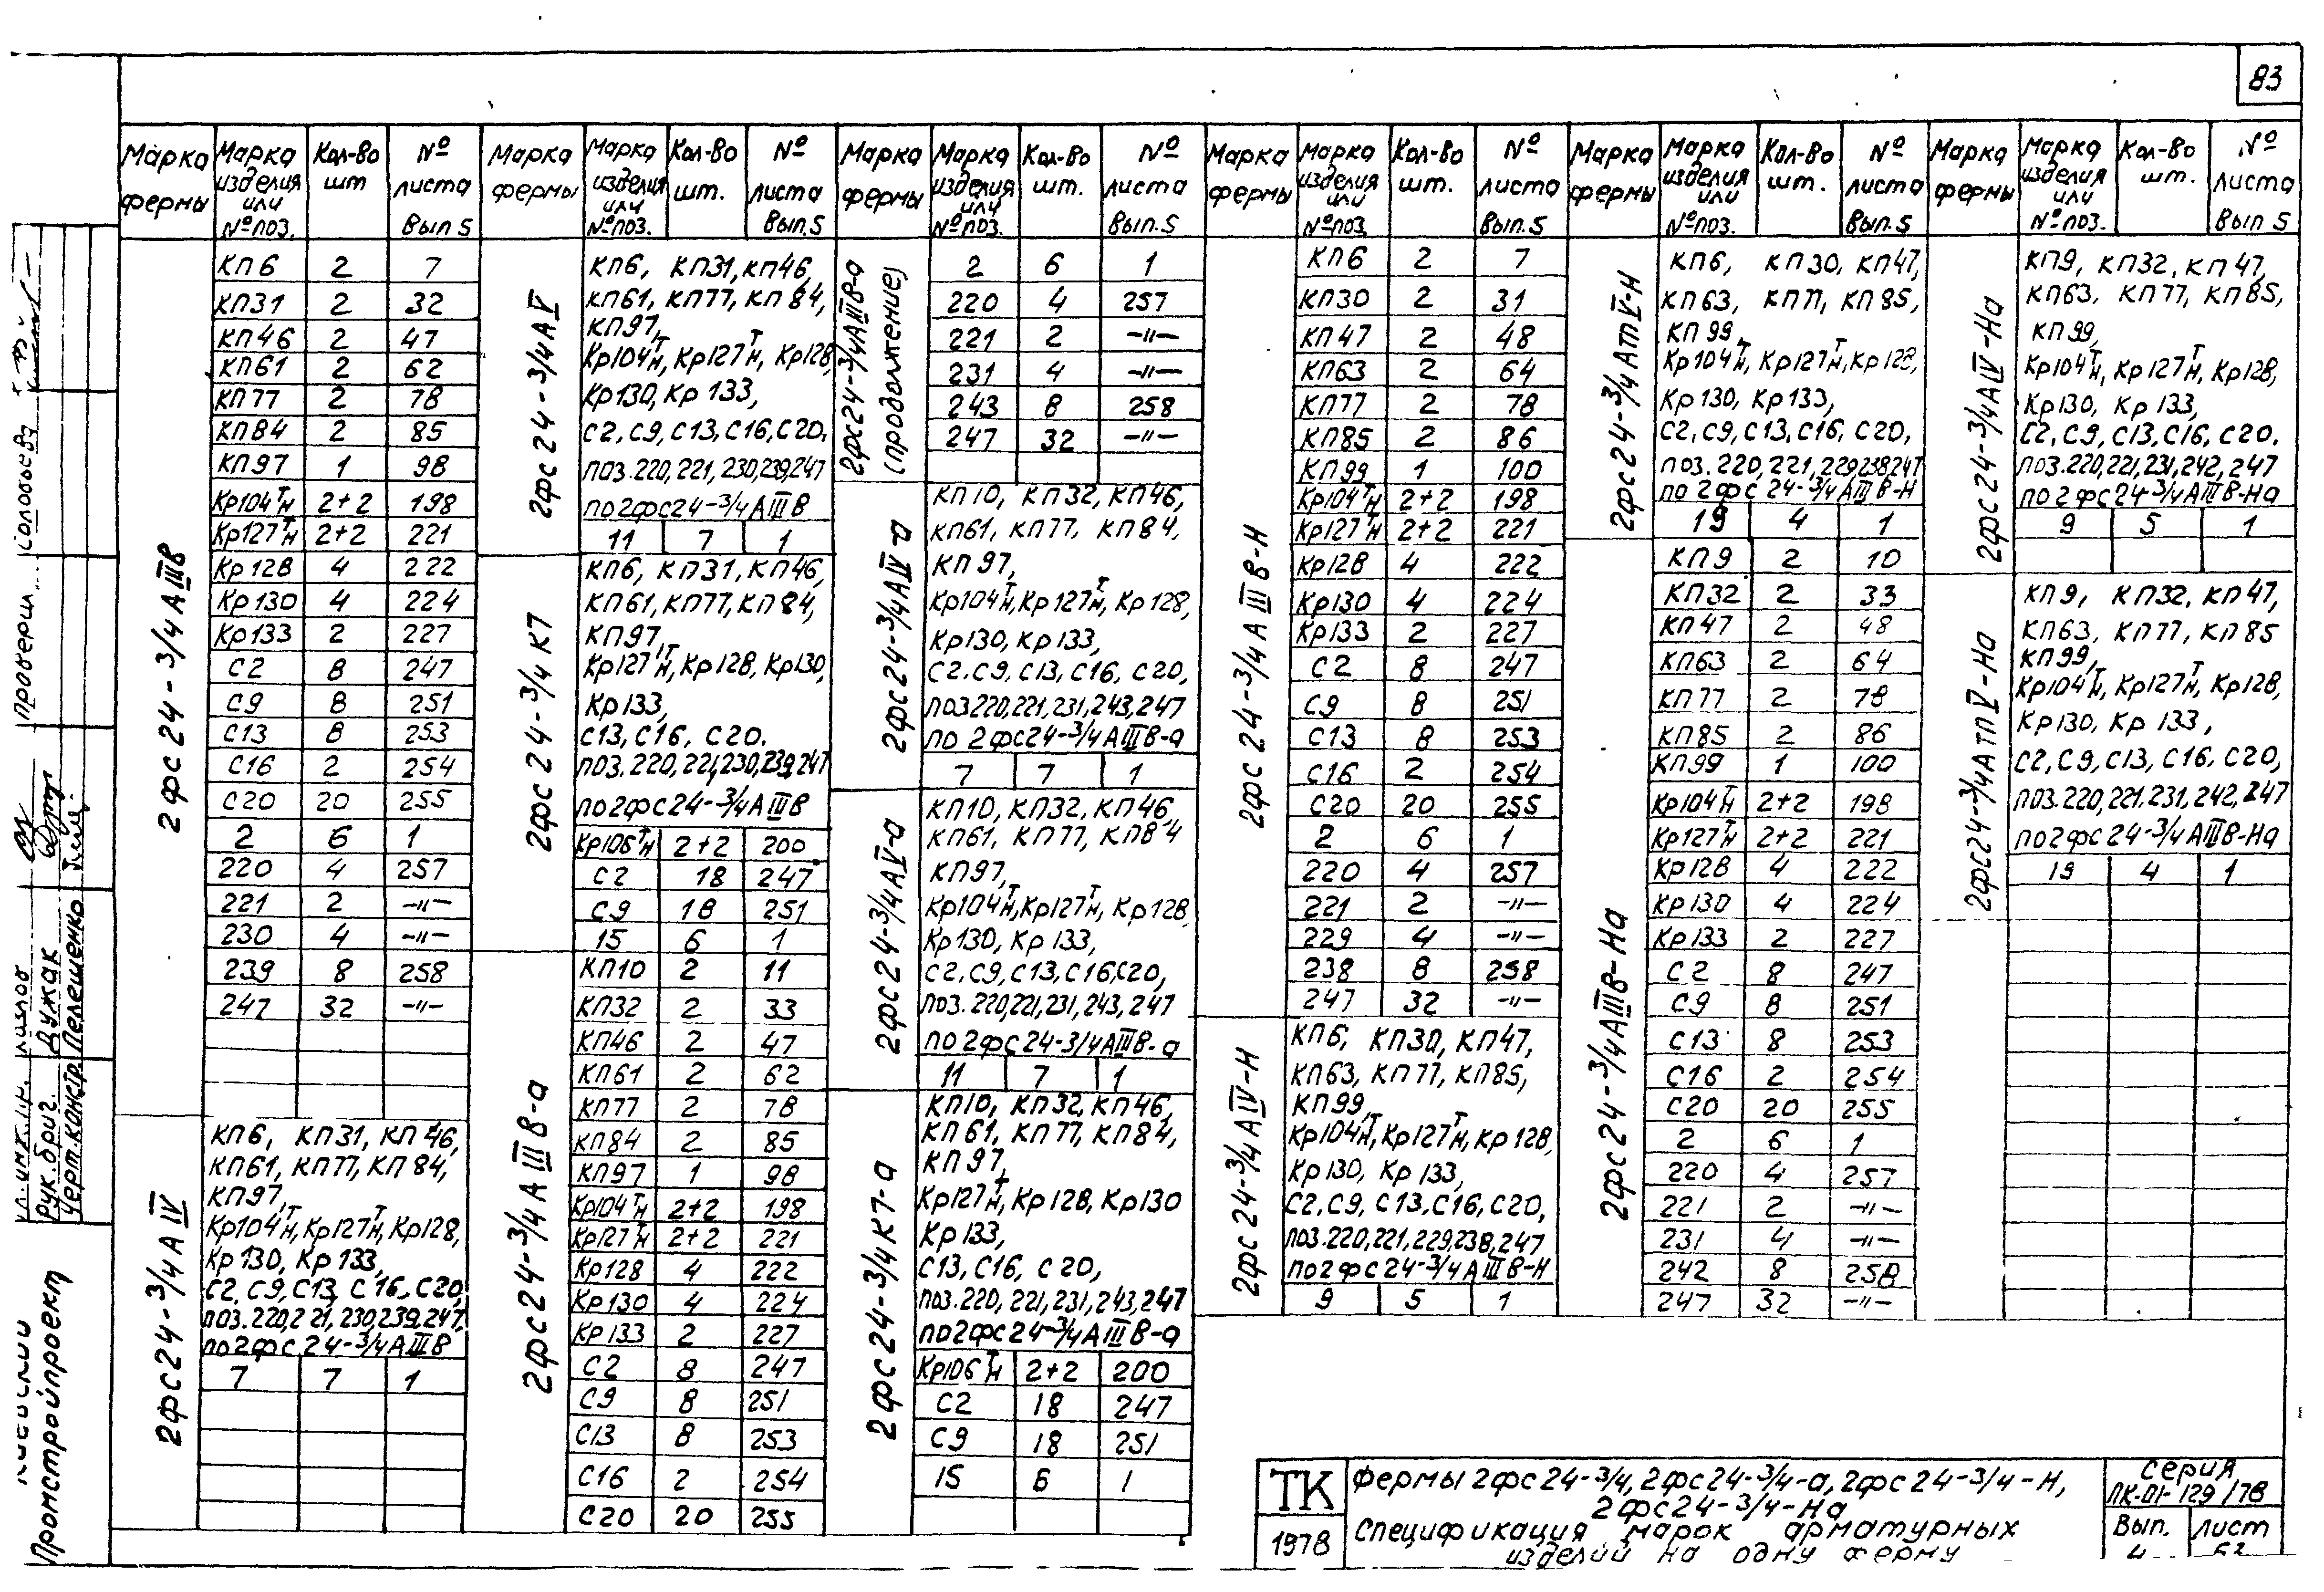 83
Марка фермы | Марка изделия или № поз. | Кол-во шт | № листа Вып 5
2фс24-3/4АIIIв
КП6 2 7
КП31 2 32
КП46 2 47
КП61 2 62
КП77 2 78
КП84 2 85
КП97 1 98
Кр104т/н 2+2 198
Кр127т/н 2+2 221
Кр128 4 222
Кр130 4 224
Кр133 2 227
С2 8 247
С9 8 251
С13 8 253
С16 2 254
С20 20 255
2 6 1
220 4 257
221 2 –"–
230 4 –"–
239 8 258
247 32 –"–
2фс24-3/4АIV
КП6, КП31, КП46,
КП61, КП77, КП84,
КП97,
Кр104т/н, Кр127т/н, Кр128,
Кр130, Кр133,
С2, С9, С13, С16, С20,
поз.220,221,230,239,247,
по 2фс24-3/4АIIIв
7 7 1
Марка фермы | Марка изделия или № поз. | Кол-во шт. | № листа Вып.5
2фс24-3/4АV
КП6, КП31, КП46,
КП61, КП77, КП84,
КП97,
Кр104т/н, Кр127т/н, Кр128,
Кр130, Кр133,
С2, С9, С13, С16, С20,
поз.220,221,230,239,247
по 2фс24-3/4АIIIв
11 7 1
2фс24-3/4К7
КП6, КП31, КП46,
КП61, КП77, КП84,
КП97,
Кр127т/н, Кр128, Кр130,
Кр133,
С13, С16, С20.
поз.220,221,230,239,247
по 2фс24-3/4АIIIв
Кр106т/н 2+2 200
С2 18 247
С9 18 251
15 6 1
2фс24-3/4АIIIв-а
КП10 2 11
КП32 2 33
КП46 2 47
КП61 2 62
КП77 2 78
КП84 2 85
КП97 1 98
Кр104т/н 2+2 198
Кр127т/н 2+2 221
Кр128 4 222
Кр130 4 224
Кр133 2 227
С2 8 247
С9 8 251
С13 8 253
С16 2 254
С20 20 255
Марка фермы | Марка изделия или № поз. | Кол-во шт. | № листа Вып.5
2фс24-3/4АIIIв-а (продолжение)
2 6 1
220 4 257
221 2 –"–
231 4 –"–
243 8 258
247 32 –"–
2фс24-3/4АIV-а
КП10, КП32, КП46,
КП61, КП77, КП84,
КП97,
Кр104т/н, Кр127т/н, Кр128,
Кр130, Кр133,
С2, С9, С13, С16, С20,
поз.220,221,231,243,247
по 2фс24-3/4АIIIв-а
7 7 1
2фс24-3/4АV-а
КП10, КП32, КП46
КП61, КП77, КП84
КП97,
Кр104т/н, Кр127т/н, Кр128
Кр130, Кр133,
С2, С9, С13, С16, С20,
поз.220,221,231,243,247
по 2фс24-3/4АIIIв-а
11 7 1
2фс24-3/4К7-а
КП10, КП32, КП46,
КП61, КП77, КП84,
КП97,
Кр127т/н, Кр128, Кр130
Кр133,
С13, С16, С20,
поз.220, 221,231,243,247
по 2фс24-3/4АIIIв-а
Кр106т/н 2+2 200
С2 18 247
С9 18 251
15 6 1
Марка фермы | Марка изделия или № поз | Кол-во шт. | № листа Вып.5
2фс24-3/4АIIIв-Н
КП6 2 7
КП30 2 31
КП47 2 48
КП63 2 64
КП77 2 78
КП85 2 86
КП99 1 100
Кр104т/н 2+2 198
Кр127т/н 2+2 221
Кр128 4 222
Кр130 4 224
Кр133 2 227
С2 8 247
С9 8 251
С13 8 253
С16 2 254
С20 20 255
2 6 1
220 4 257
221 2 –"–
229 4 –"–
238 8 258
247 32 –"–
2фс24-3/4АIV-Н
КП6, КП30, КП47,
КП63, КП77, КП85,
КП99,
Кр104т/н, Кр127т/н, Кр128,
Кр130, Кр133,
С2, С9, С13, С16, С20,
поз.220,221,229,238,247
по 2фс24-3/4АIIIв-Н
9 5 1
Марка фермы | Марка изделия или № поз. | Кол-во шт. | № листа Вып.5
2фс24-3/4АтпV-Н
КП6, КП30, КП47,
КП63, КП77, КП85,
КП99,
Кр104т/н, Кр127т/н, Кр128,
Кр130, Кр133,
С2, С9, С13, С16, С20,
поз.220,221,229,238,247
по 2фс24-3/4АIIIв-Н
19 4 1
2фс24-3/4АIIIв-На
КП9 2 10
КП32 2 33
КП47 2 48
КП63 2 64
КП77 2 78
КП85 2 86
КП99 1 100
Кр104т/н 2+2 198
Кр127т/н 2+2 221
Кр128 4 222
Кр130 4 224
Кр133 2 227
С2 8 247
С9 8 251
С13 8 253
С16 2 254
С20 20 255
2 6 1
220 4 257
221 2 –"–
231 4 –"–
242 8 258
247 32 –"–
Марка фермы | Марка изделия или № поз. | Кол-во шт. | № листа Вып 5
2фс24-3/4АIV-На
КП9, КП32, КП47,
КП63, КП77, КП85,
КП99,
Кр104т/н, Кр127т/н, Кр128,
Кр130, Кр133,
С2, С9, С13, С16, С20.
поз.220,221,231,242,247
по 2фс24-3/4АIIIв-На
9 5 1
2фс24-3/4АтпV-На
КП9, КП32, КП47,
КП63, КП77, КП85
КП99,
Кр104т/н, Кр127т/н, Кр128,
Кр130, Кр133,
С2, С9, С13, С16, С20,
поз.220,221,231,242,247
по 2фс24-3/4АIIIв-На
19 4 1
проверил Соловьева
Рук.бриг. Дужак
Черт.констр. Пелешенко
Промстройпроект
ТК
1978
Фермы 2фс24-3/4, 2фс24-3/4-а, 2фс24-3/4-Н,
2фс24-3/4-На
Спецификация марок арматурных
изделий на одну ферму
Серия
ПК-01-129/78
Вып. Лист
4 62